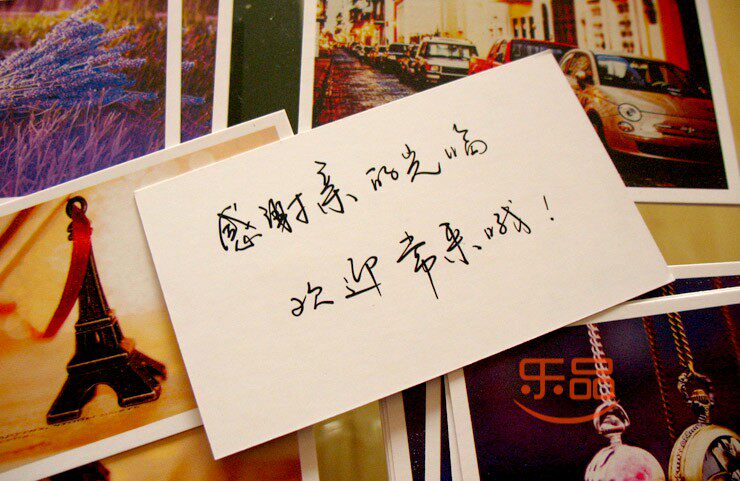 感谢亲的光临
欢迎常来哦！
乐品